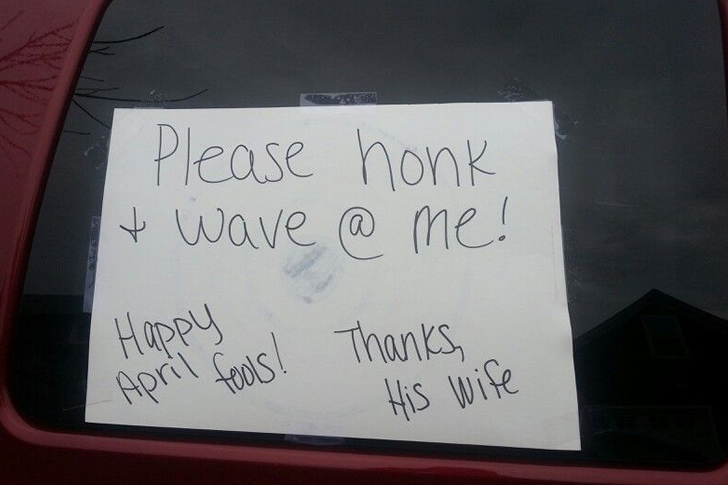 Please honk
+ wave @ me!
Happy
April fools!
Thanks,
His wife